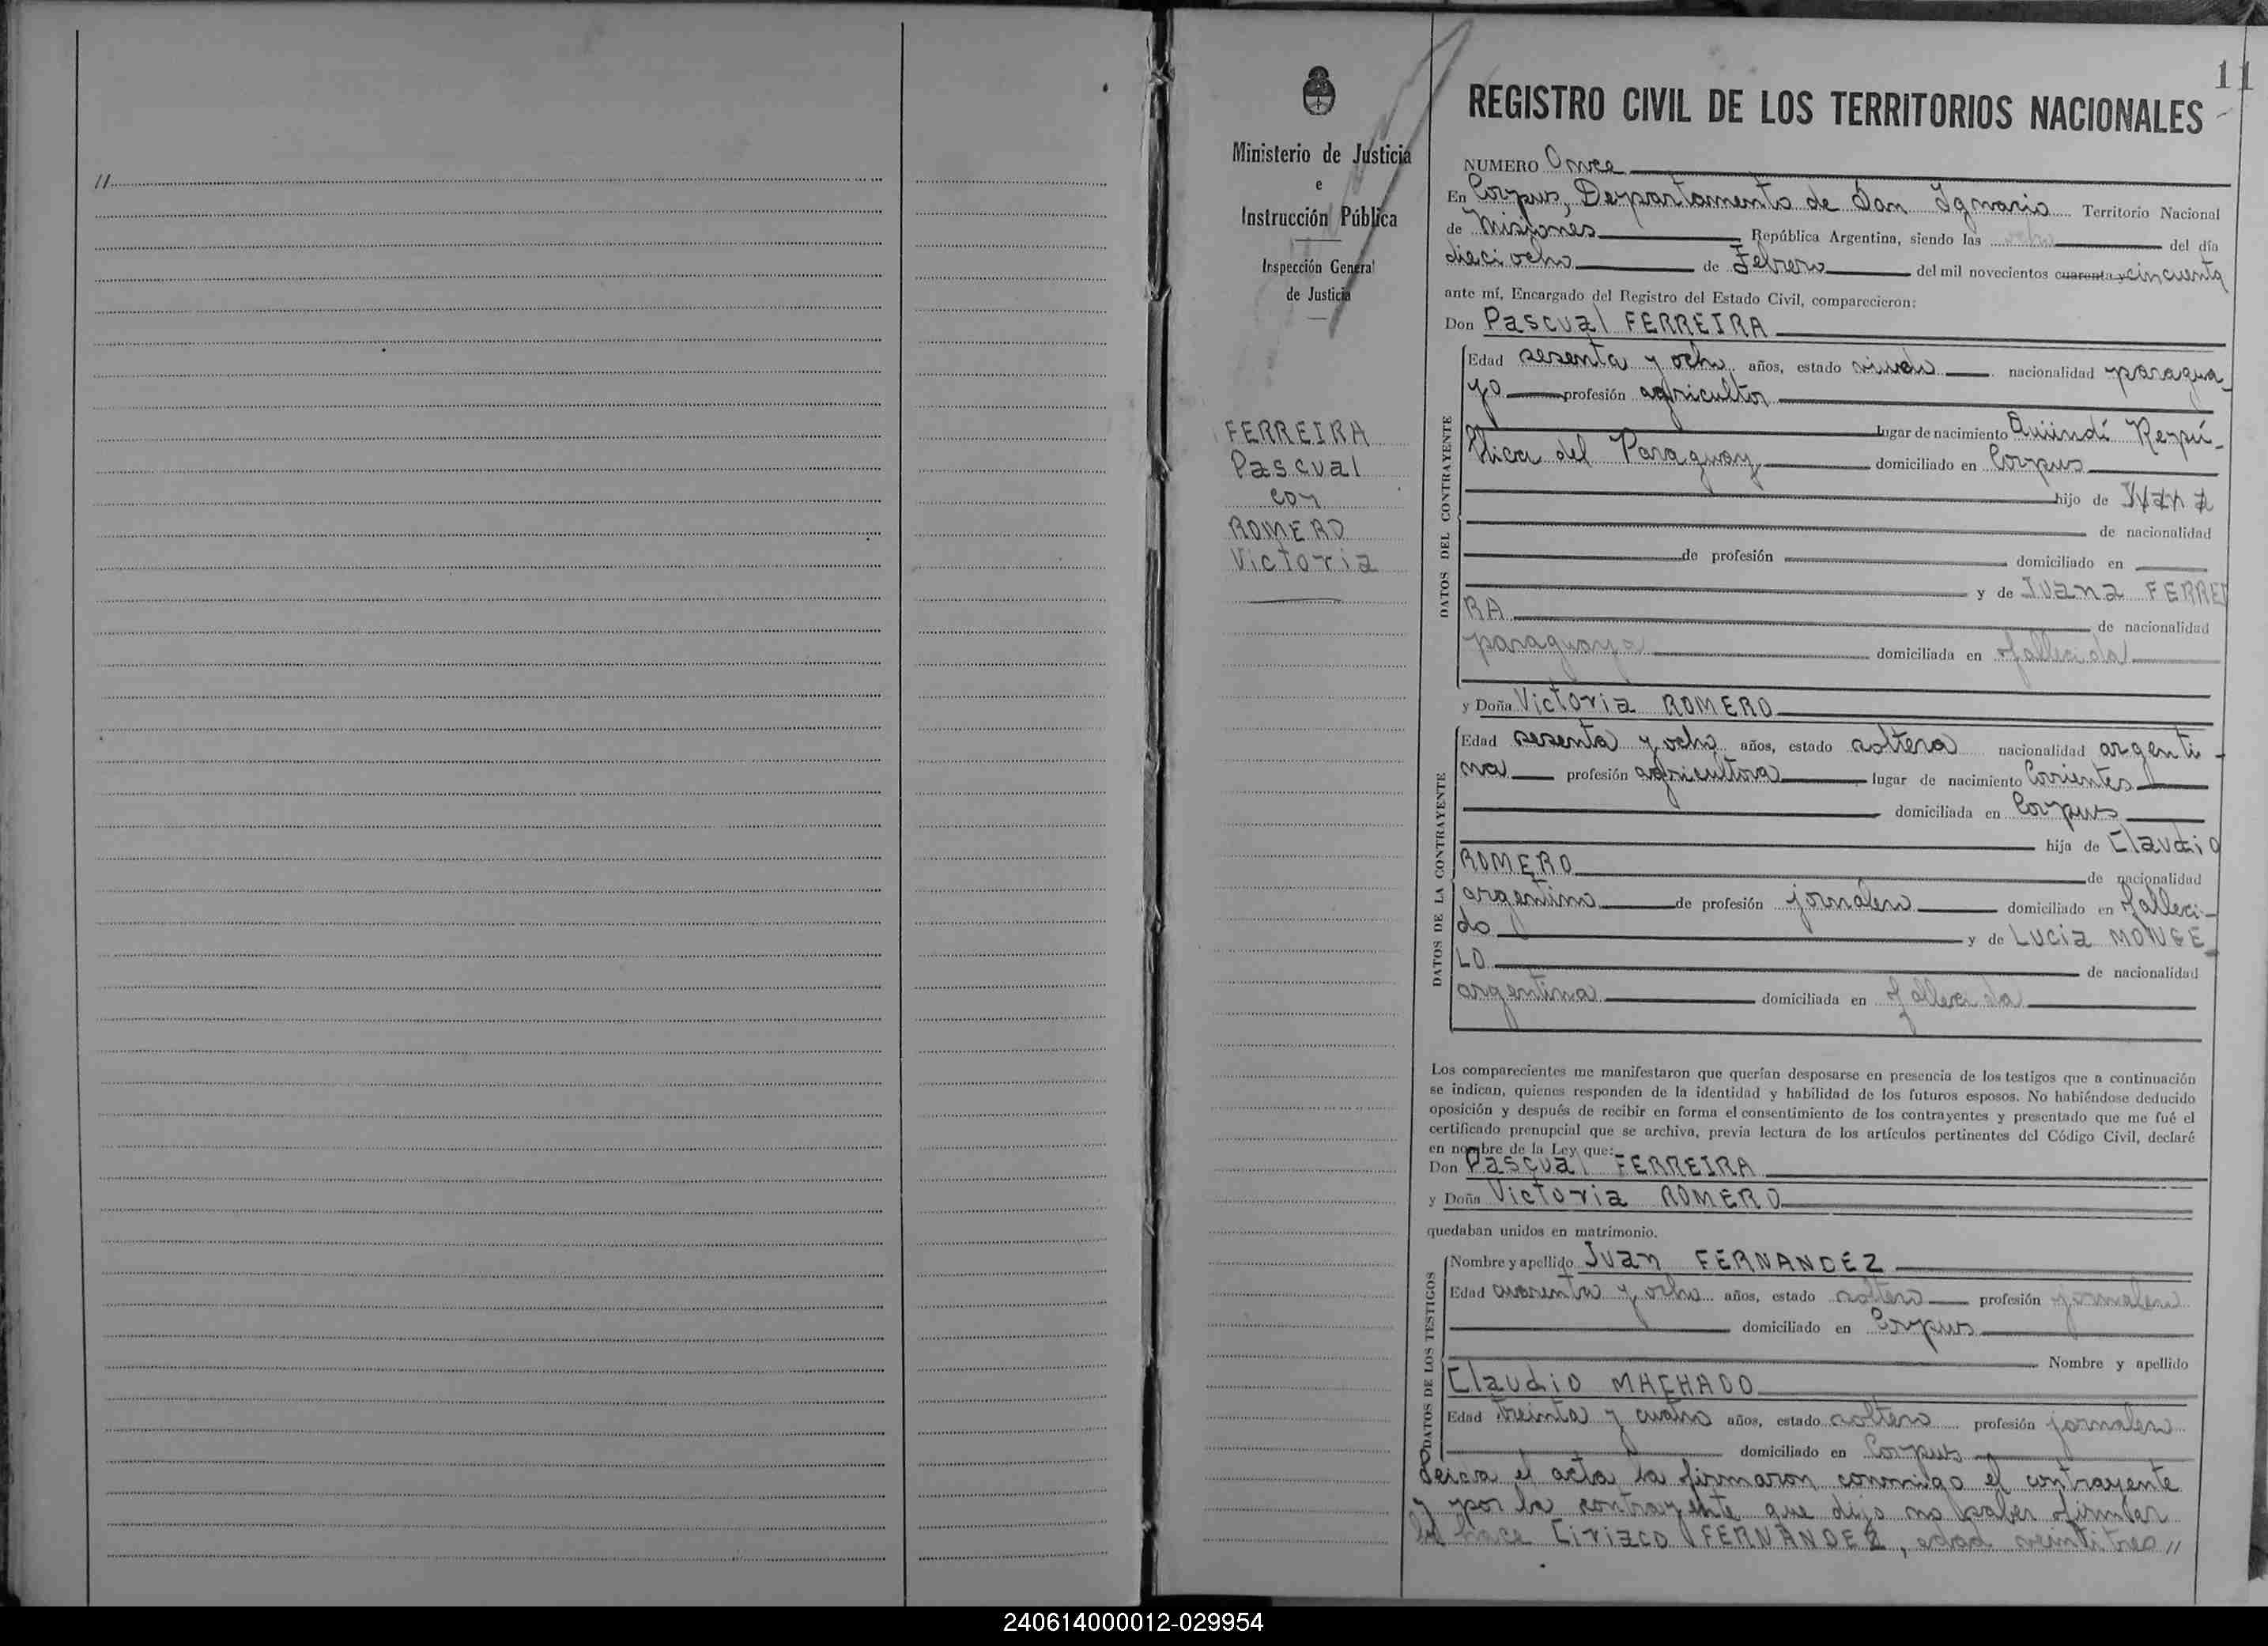 11
11
REGISTRO CIVIL DE LOS TERRITORIOS NACIONALES
Ministerio de Justicia
e
Instrucción Pública
Inspección General
de Justicia
FERREIRA
Pascual
con
ROMERO
Victoria
NUMERO Once
En Corpus, Departamento de San Ignacio Territorio Nacional
de Misiones República Argentina, siendo las ocho del día
dieciocho de Febrero del mil novecientos cuarenta y cincuenta
ante mí, Encargado del Registro del Estado Civil, comparecieron:
Don Pascual FERREIRA
Edad sesenta y ocho años, estado viudo nacionalidad paragua-
yo profesión agricultor
lugar de nacimiento Quiindí Repú-
blica del Paraguay domiciliado en Corpus
hijo de
de nacionalidad
de profesión domiciliado en
y de Juana FERREI
RA de nacionalidad
paraguaya domiciliada en fallecida
y Doña Victoria ROMERO
Edad sesenta y ocho años, estado soltera nacionalidad argenti-
na profesión agricultora lugar de nacimiento Corrientes
domiciliada en Corpus
hija de Claudio
ROMERO de nacionalidad
argentino de profesión jornalero domiciliado en falleci-
do y de Lucia MONGE
LO de nacionalidad
argentina domiciliada en fallecida
DATOS DEL CONTRAYENTE
DATOS DE LA CONTRAYENTE
Los comparecientes me manifestaron que querían desposarse en presencia de los testigos que a continuación
se indican, quienes responden de la identidad y habilidad de los futuros esposos. No habiéndose deducido
oposición y después de recibir en forma el consentimiento de los contrayentes y presentado que me fué el
certificado prenupcial que se archiva, previa lectura de los artículos pertinentes del Código Civil, declaré
en nombre de la Ley que:
Don Pascual FERREIRA
y Doña Victoria ROMERO
quedaban unidos en matrimonio.
DATOS DE LOS TESTIGOS
Nombre y apellido Juan FERNANDEZ
Edad cuarenta y ocho años, estado soltero profesión jornalero
domiciliado en Corpus
Nombre y apellido
Claudio MACHADO
Edad treinta y cuatro años, estado soltero profesión jornalero
domiciliado en Corpus
Leida el acta la firmaron conmigo el contrayente
y por la contrayente que dijo no saber firmar
lo hace Ciriaco FERNANDEZ, edad veintitres //
240614000012-029954